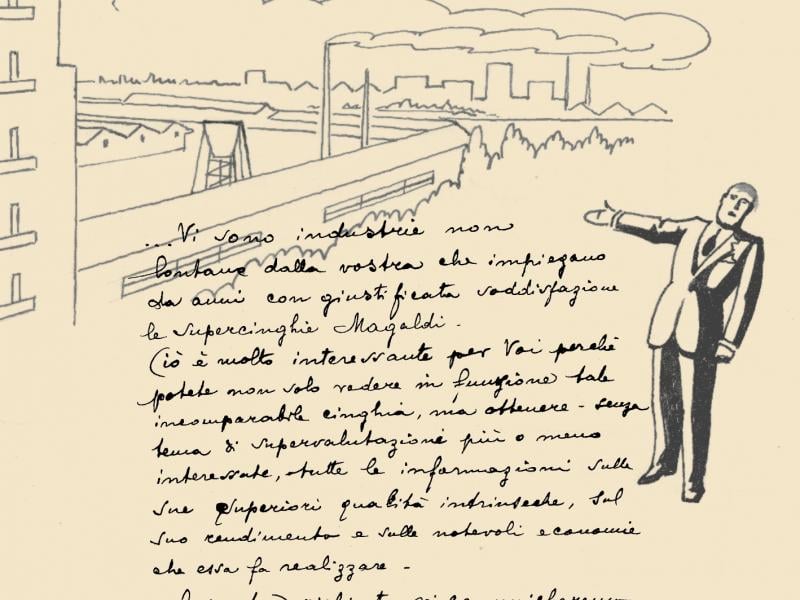 ...Vi sono industrie non
lontane dalla vostra che impiegano
da anni con giustificata soddisfazione
le supercinghie Magaldi.
Ciò è molto interessante per Voi perchè
potete non solo vedere in funzione tale
incomparabile cinghia, ma ottenere - senza
tema di supervalutazioni più o meno
interessate, tutte le informazioni sulle
sue superiori qualità intrinseche, sul
suo rendimento e sulle notevoli economie
che essa fa realizzare -